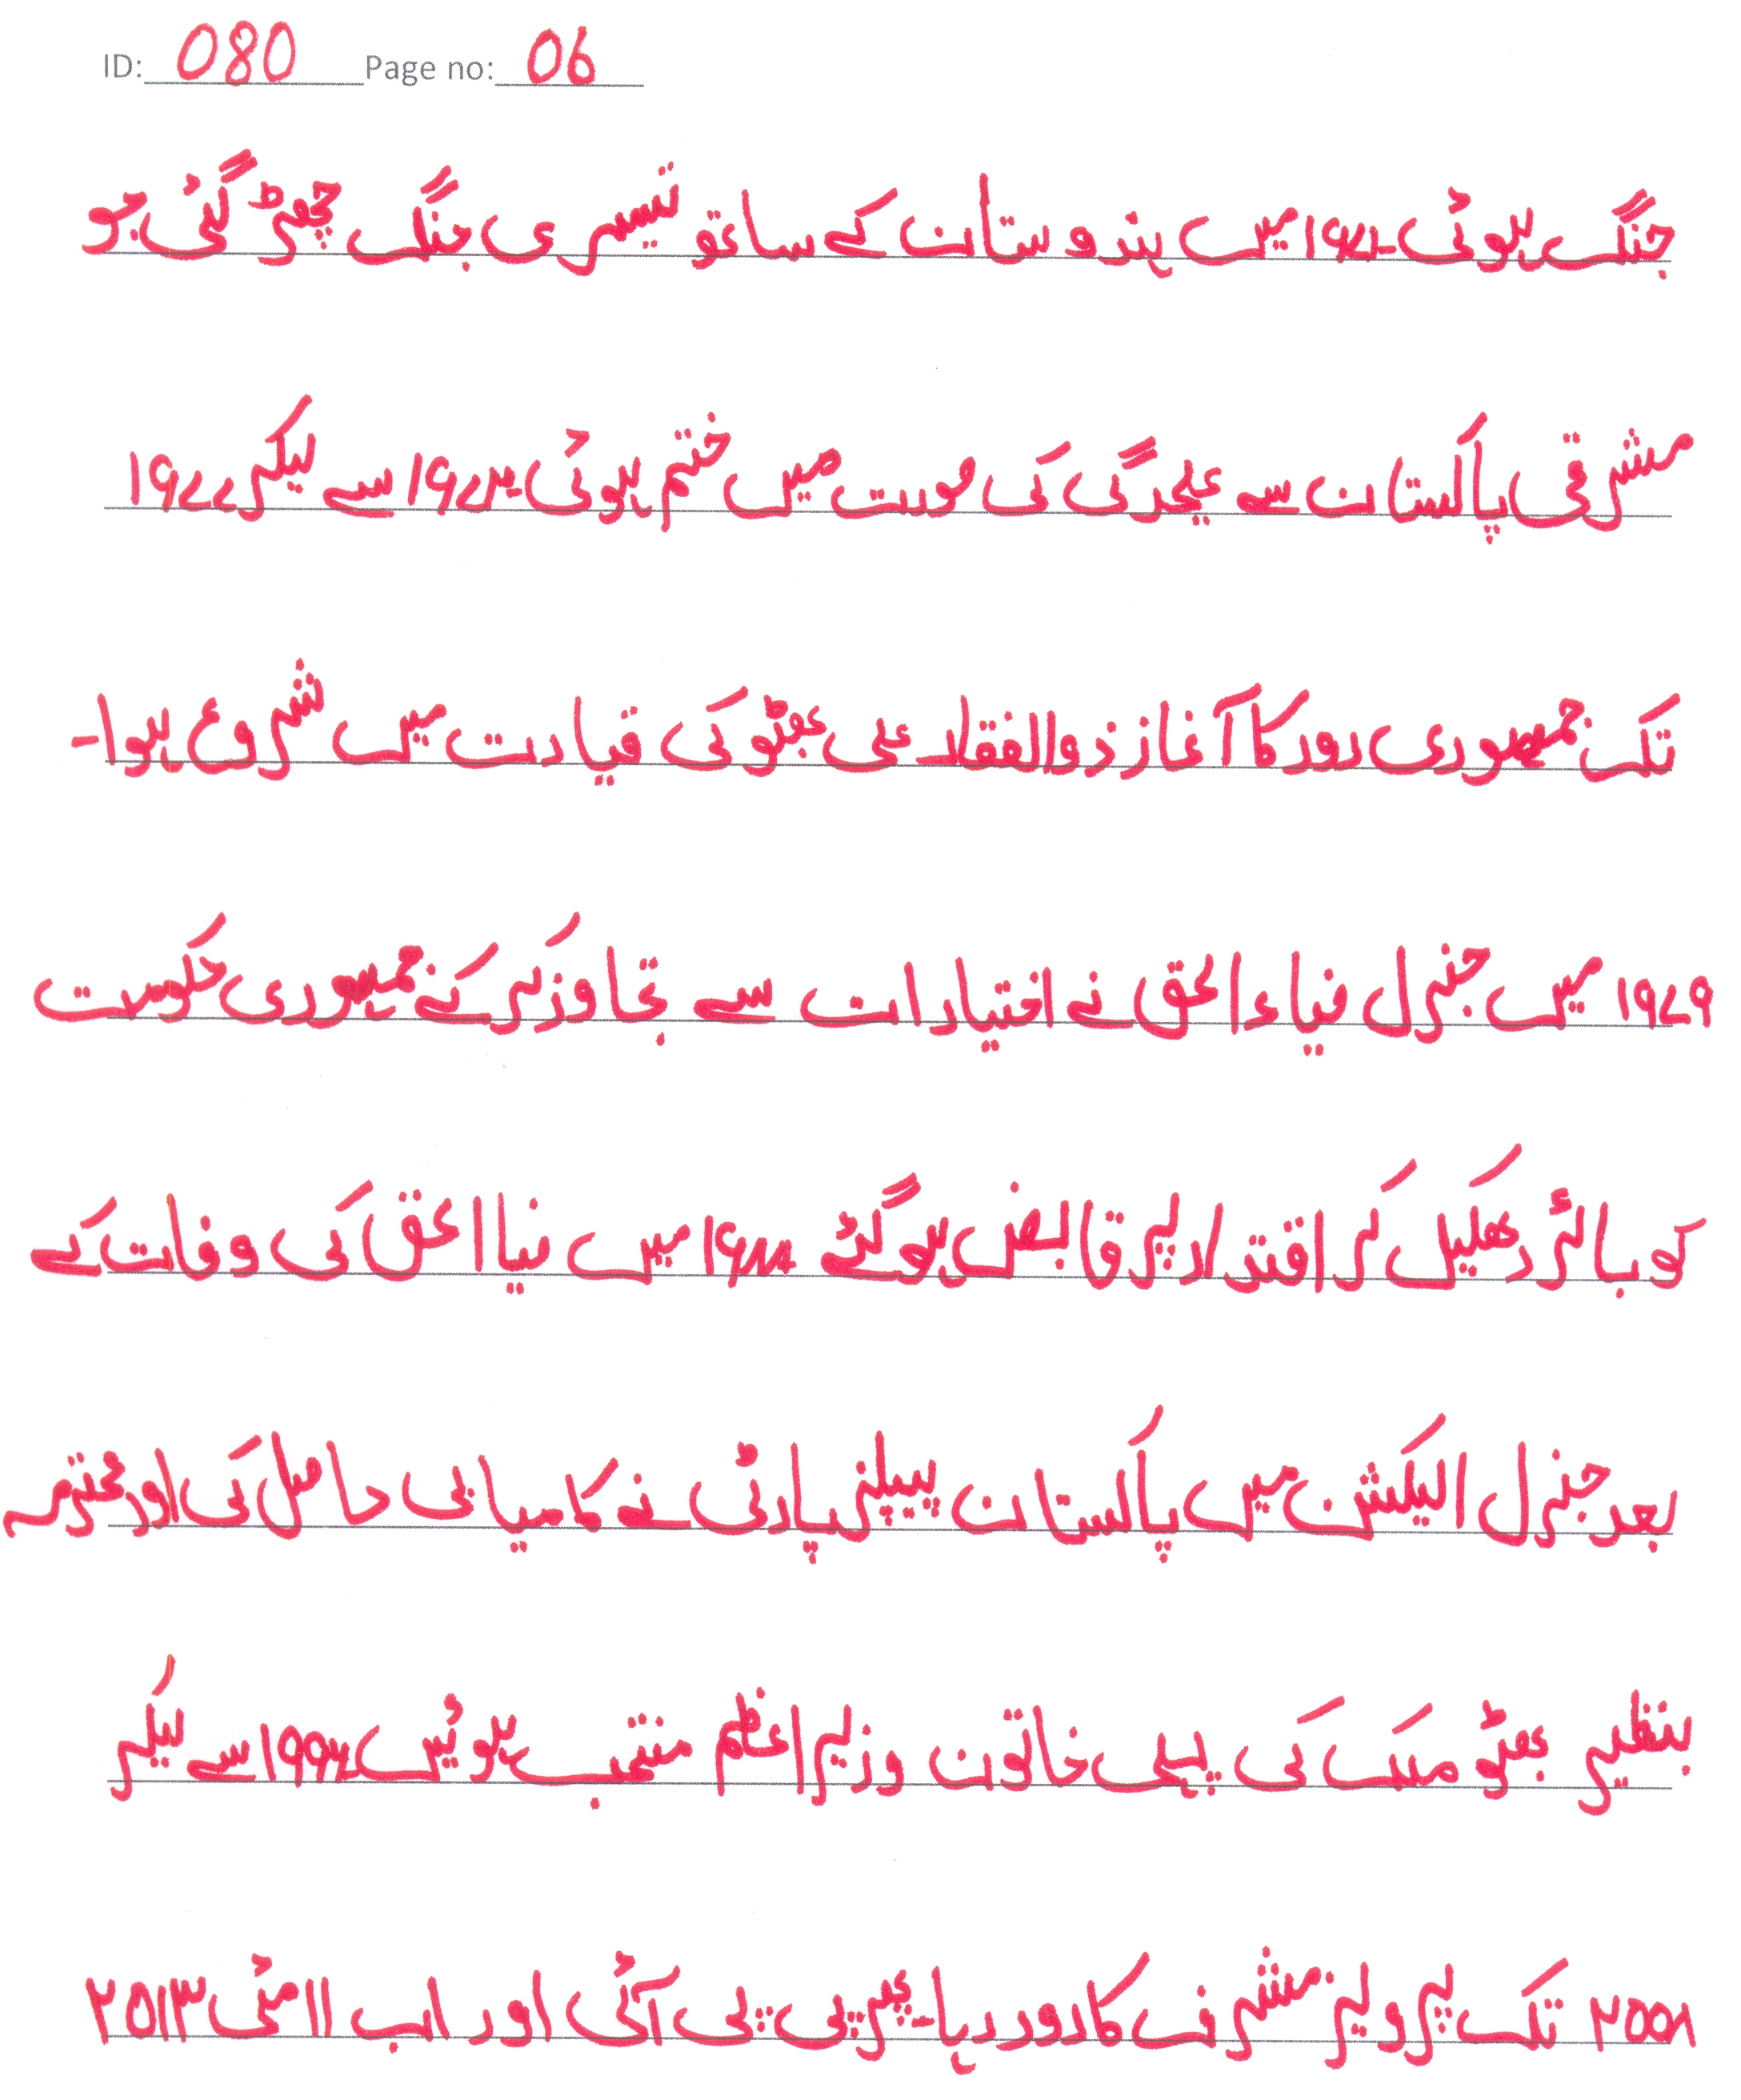 ID: 080 Page no: 06
جنگ ہوئی ۱۹۷۱ میں ہندوستان کے ساتھ تیسری جنگ چھڑ گئی جو
مشرقی پاکستان سے علیحدگی کی صورت میں ختم ہوئی ۱۹۷۲ سے لیکر ۱۹۷۷
تک جمہوری دور کا آغاز ذوالفقار علی بھٹو کی قیادت میں شروع ہوا۔
۱۹۷۹ میں جنرل ضیاء الحق نے اختیارات سے تجاوز کر کے جمہوری حکومت
کو بائر دھکیل کر اقتدار پر قابض ہو گئے ۱۹۸۸ میں ضیا الحق کی وفات کے
بعد جنرل الیکشن میں پاکستان پیپلز پارٹی نے کامیابی حاصل کی اور محترمہ
بنظیر بھٹو ملک کی پہلی خاتون وزیر اعظم منتخب ہوئیں ۱۹۹۹ سے لیکر
۲۰۰۸ تک پرویز مشرف کا دور رہا۔ پھر پی پی آئی اور اب ۱۱ مئی ۲۰۱۳